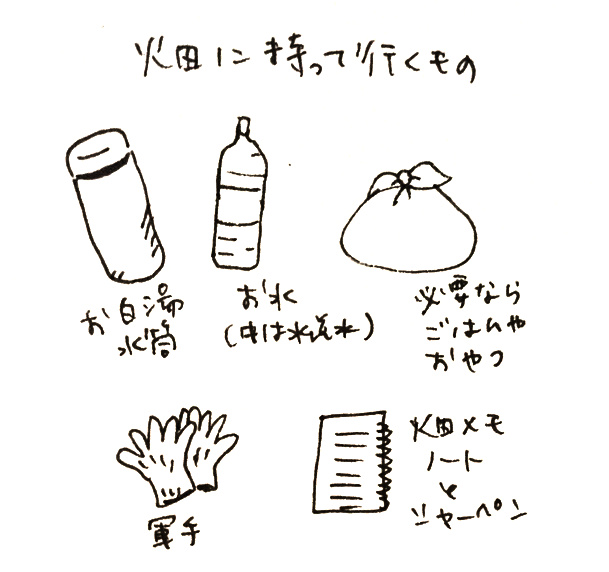 畑に持って行くもの
お白湯
水筒
お水
(中は水道水)
必要なら
ごはんや
おやつ
軍手
畑メモ
ノート
と
シャーペン